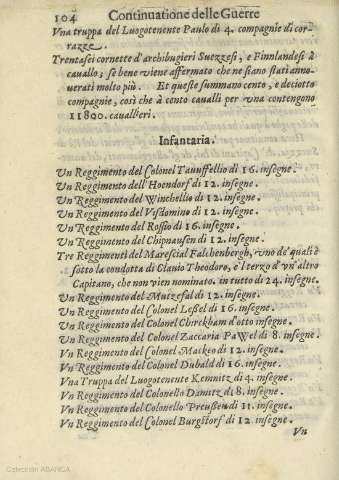 104 Continuatione delle Guerre
Vna truppa del Luogotenente Paulo di 4. compagnie di cor-
razze.
Trentasei cornette d'archibugieri Suezzesi, e Finnlandesi à
cauallo; se bene viene affermato che ne siano stati anno-
uerati molto più. Et queste summano cento, e deciotto
compagnie, così che à cento caualli per vna contengono
11800. cauallieri.
Infantaria.
Vn Reggimento del Colonel Tauuffellio di 16. insegne.
Vn Reggimento dell'Hoendorf di 12. insegne.
Vn Reggimento del Winchellio di 12. insegne.
Vn Reggimento del Visdomino di 12. insegne.
Vn Reggimento del Rossio di 16. insegne.
Vn Reggimento del Chipnausen di 12. insegne.
Tre Reggimenti del Marescial Falchenbergh, vno de' quali è
sotto la condotta di Clauio Theodoro, e'l terzo d'vn'altro
Capitano, che non vien nominato, in tutto di 24. insegne.
Vn Reggimento del Mutzefal di 12. insegne.
Vn Reggimento del Colonel Lessel di 16. insegne.
Vn Reggimento del Colonel Chirckham d'otto insegne.
Vn Reggimento del Colonel Zaccaria Pawel di 8. insegne.
Vn Reggimento del Colonel Maskeo di 12. insegne.
Vn Reggimento del Colonel Dubald di 16. insegne.
Vna Truppa del Luogotenente Kemnitz di 4. insegne.
Vn Reggimento del Colonello Damitz di 8. insegne.
Vn Reggimento del Colonello Preussen di 11. insegne.
Vn Reggimento del Colonel Burgstorf di 12. insegne.
Vn
Colección ABANCA